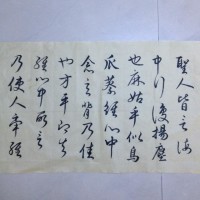 聖人皆言海
中行復揚塵
也麻姑手似鳥
爪蔡經心中
念言背乃佳
也方平已知
經心中所言
乃使人牽經